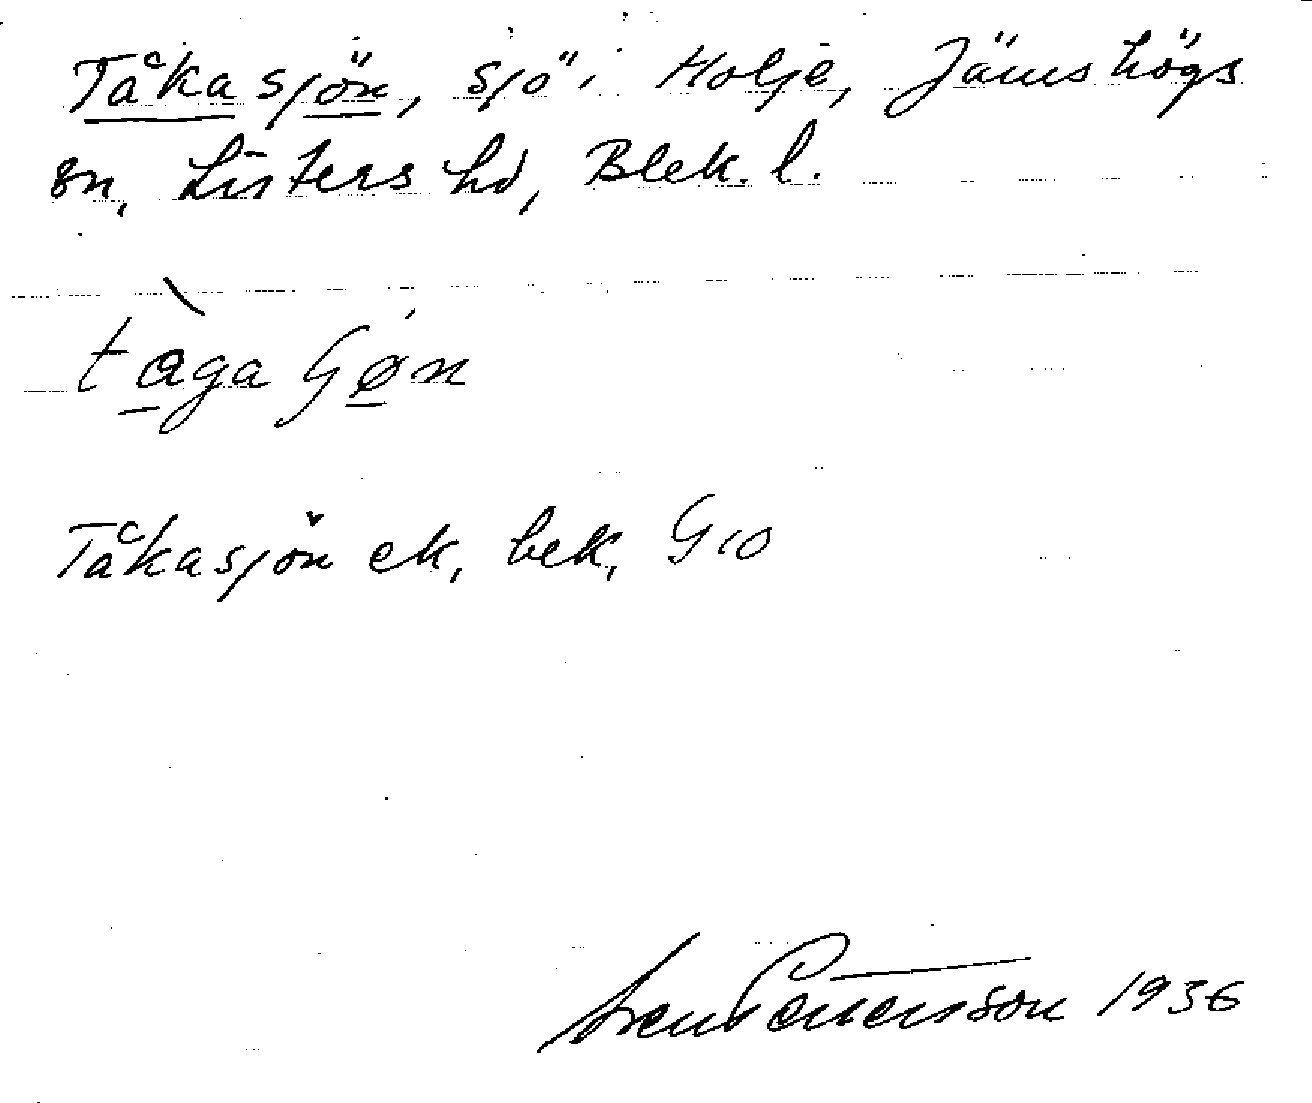 Tåkasjön, sjö i Holje, Jämshögs
sn, Listers hd, Blek. l.
tàga Gøn
Tåkasjön ek, bek, G10
Sven Pettersson 1936